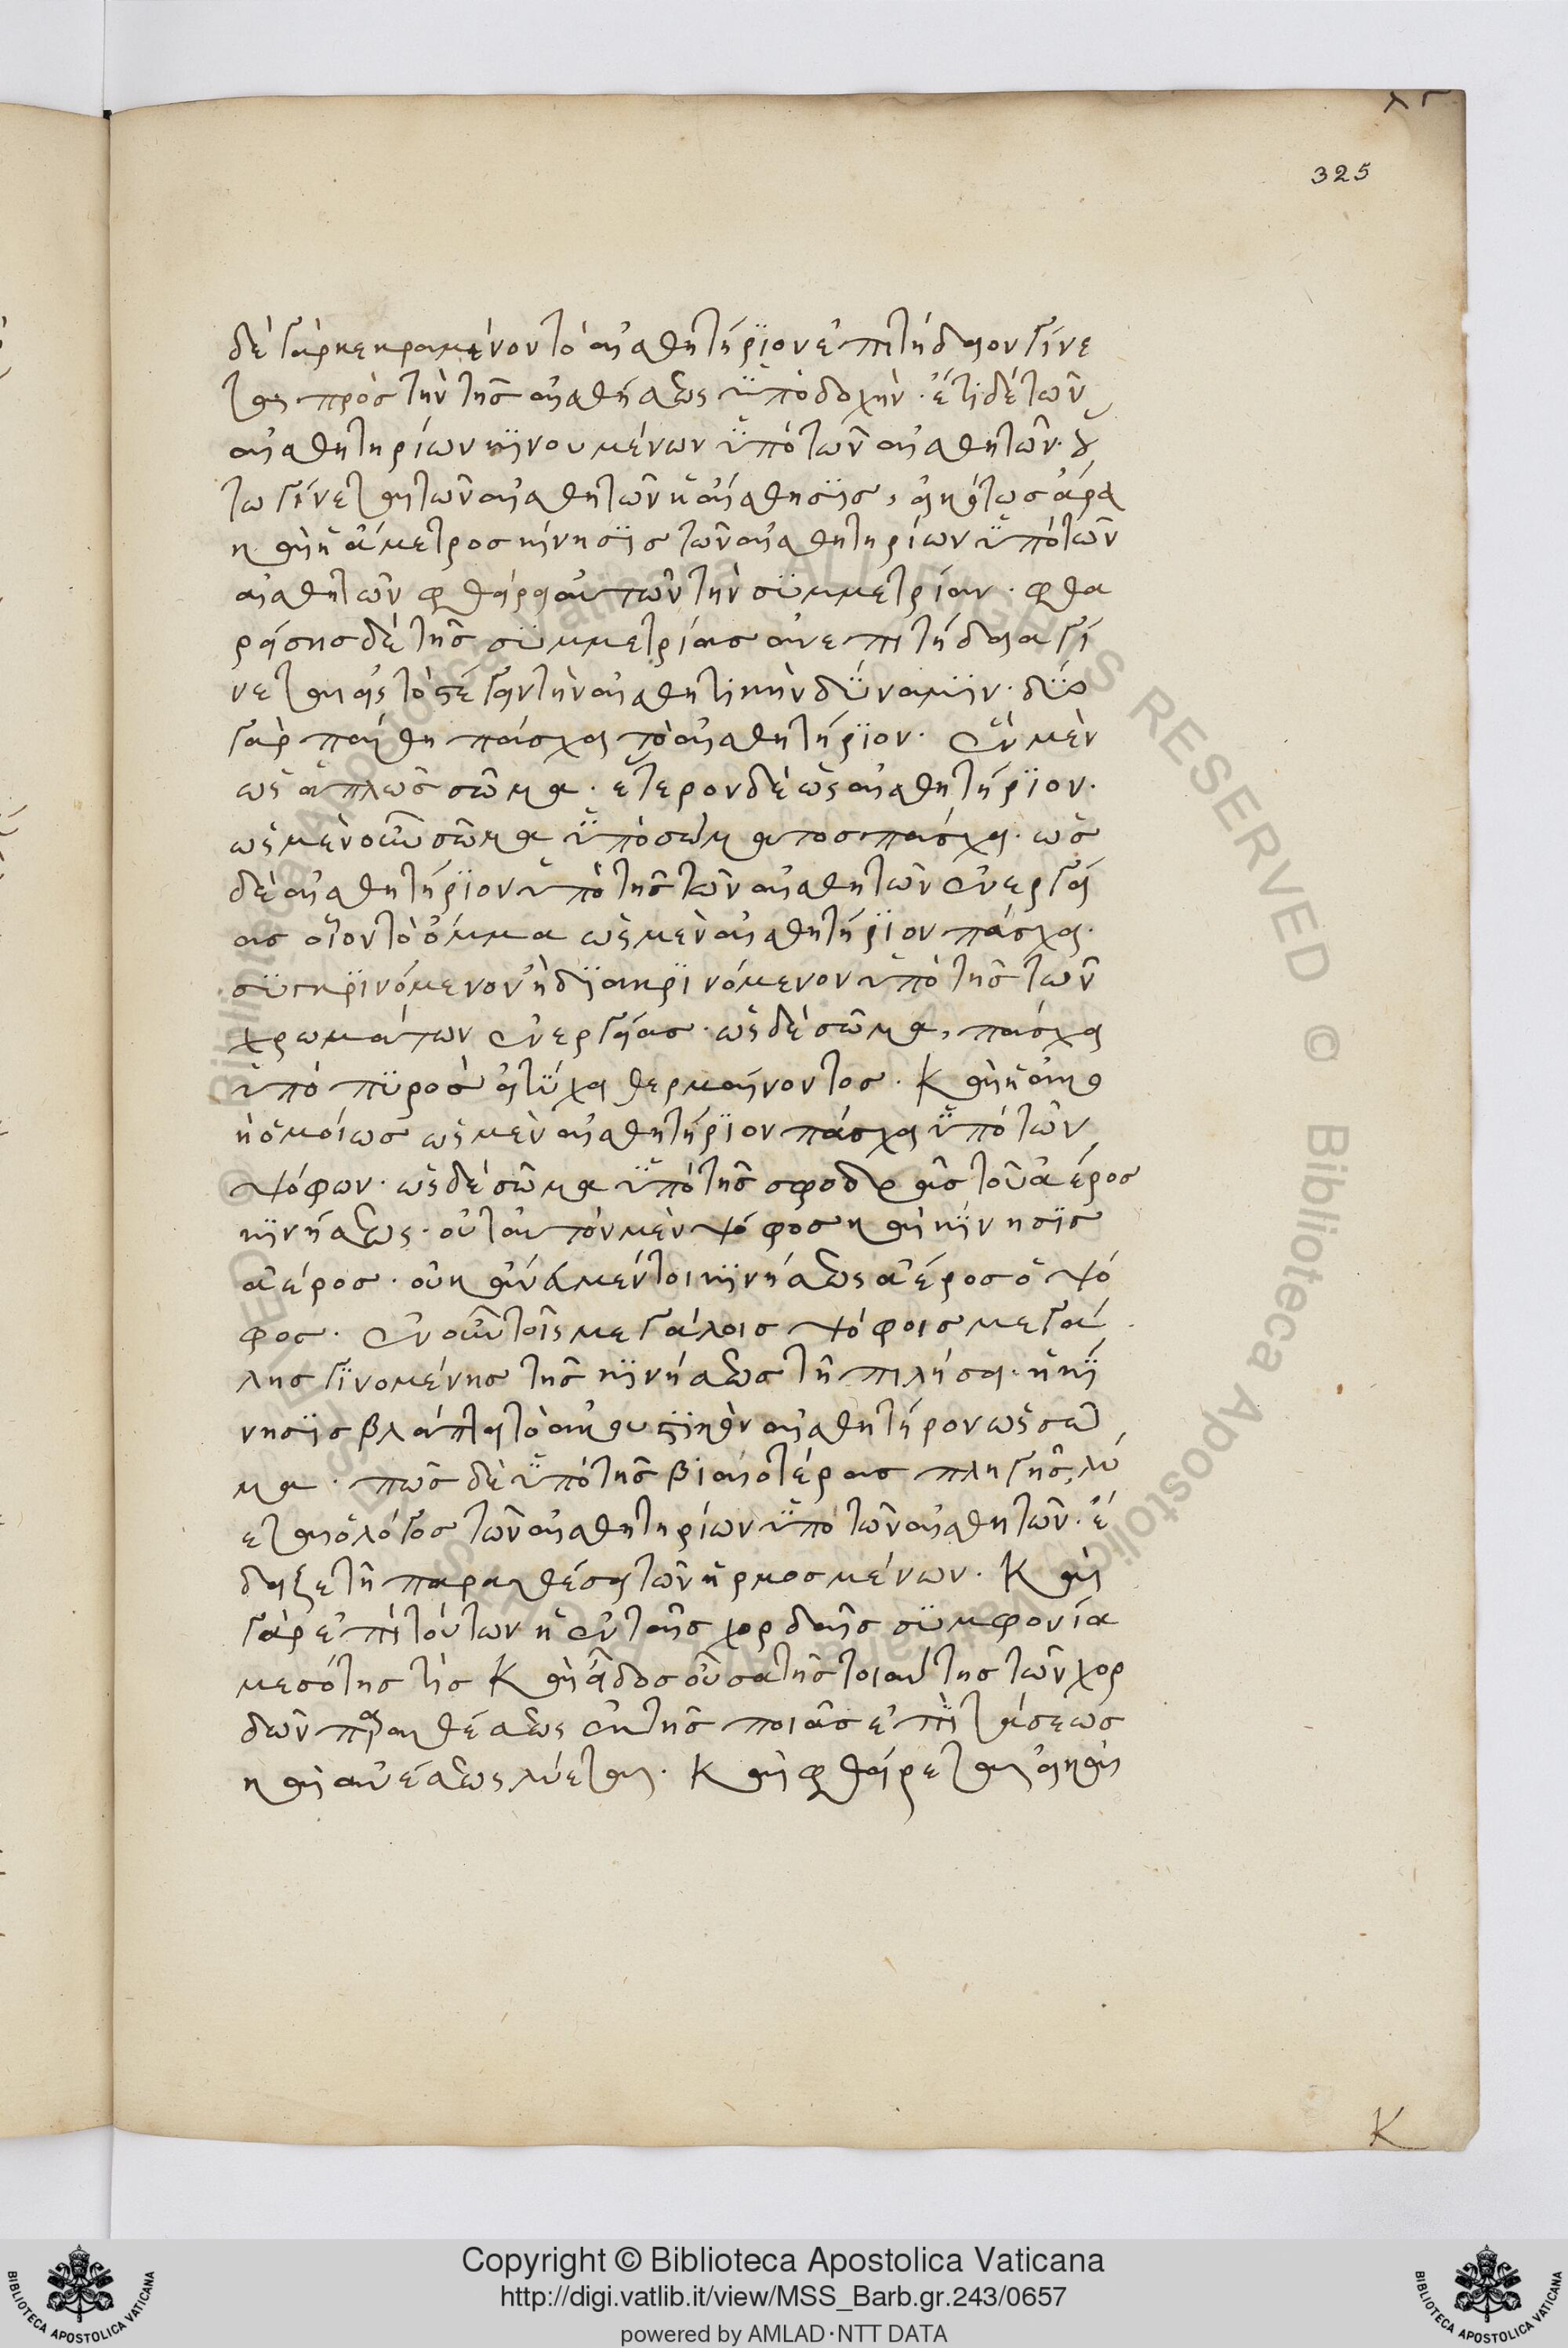 325
δὲ γὰρ κεκραμένον τὸ αἰσθητήριον ἐπιτήδειον γίνε
ται πρὸς τὴν τῆς αἰσθήσεως ὑποδοχήν. ἔτι δὲ τῶν
αἰσθητηρίων κινουμένων ὑπὸ τῶν αἰσθητῶν. οὕ
τω γίνεται τῶν αἰσθητῶν ἡ αἴσθησις, εἰκότως ἄρα
καὶ ἡ ἄμετρος κίνησις τῶν αἰσθητηρίων ὑπὸ τῶν
αἰσθητῶν φθείρει αὐτῶν τὴν συμμετρίαν. φθα
ρείσης δὲ τῆς συμμετρίας ἀνεπιτήδεια γί
νεται εἰς τὸ στέγειν τὴν αἰσθητικὴν δύναμιν. δύο
γὰρ πάθη πάσχει τὸ αἰσθητήριον. ἓν μὲν
ὡς ἁπλῶς σῶμα. ἕτερον δὲ ὡς αἰσθητήριον.
ὡς μὲν οὖν σῶμα ὑπὸ σώματος πάσχει. ὡς
δὲ αἰσθητήριον ὑπὸ τῆς τῶν αἰσθητῶν ἐνεργεί
ας οἷον τὸ ὄμμα ὡς μὲν αἰσθητήριον πάσχει.
συγκρινόμενον ἢ διακρινόμενον ὑπὸ τῆς τῶν
χρωμάτων ἐνεργείας. ὡς δὲ σῶμα, πάσχει
ὑπὸ πυρὸς εἰ τύχει θερμαίνοντος. Καὶ ἡ ἀκο
ὴ ὁμοίως ὡς μὲν αἰσθητήριον πάσχει ὑπὸ τῶν
ψόφων. ὡς δὲ σῶμα ὑπὸ τῆς σφοδρᾶς τοῦ ἀέρος
κινήσεως. οὐ ταὐτὸν μὲν ψόφος καὶ κίνησις
ἀέρος. οὐκ ἄνευ μέντοι κινήσεως ἀέρος ὁ ψό
φος. ἐν οὖν τοῖς μεγάλοις ψόφοις μεγά
λης γινομένης τῆς κινήσεως τῇ πιλήσει. ἡ κί
νησις βλάπτει τὸ ἀκουστικὸν αἰσθητήρον ὡς σῶ
μα. πῶς δὲ ὑπὸ τῆς βιαιοτέρας πληγῆς, λύ
εται ὁ λόγος τῶν αἰσθητηρίων ὑπὸ τῶν αἰσθητῶν. ἔ
δειξε τῇ παραθέσει τῶν ἡρμοσμένων. Καὶ
γὰρ ἐπὶ τούτων ἡ ἐν ταῖς χορδαῖς συμφονία
μεσότης τὶς Καὶ εἶδος οὖσα τῆς τοιαύτης τῶν χορ
δῶν παραθέσεως ἐκ τῆς ποιᾶς ἐπιτάσεως
καὶ ἀνέσεως λύεται. Καὶ φθείρεται, εἰ καὶ
Κ
Copyright © Biblioteca Apostolica Vaticana
http://digi.vatlib.it/view/MSS_Barb.gr.243/0657
powered by AMLAD·NTT DATA